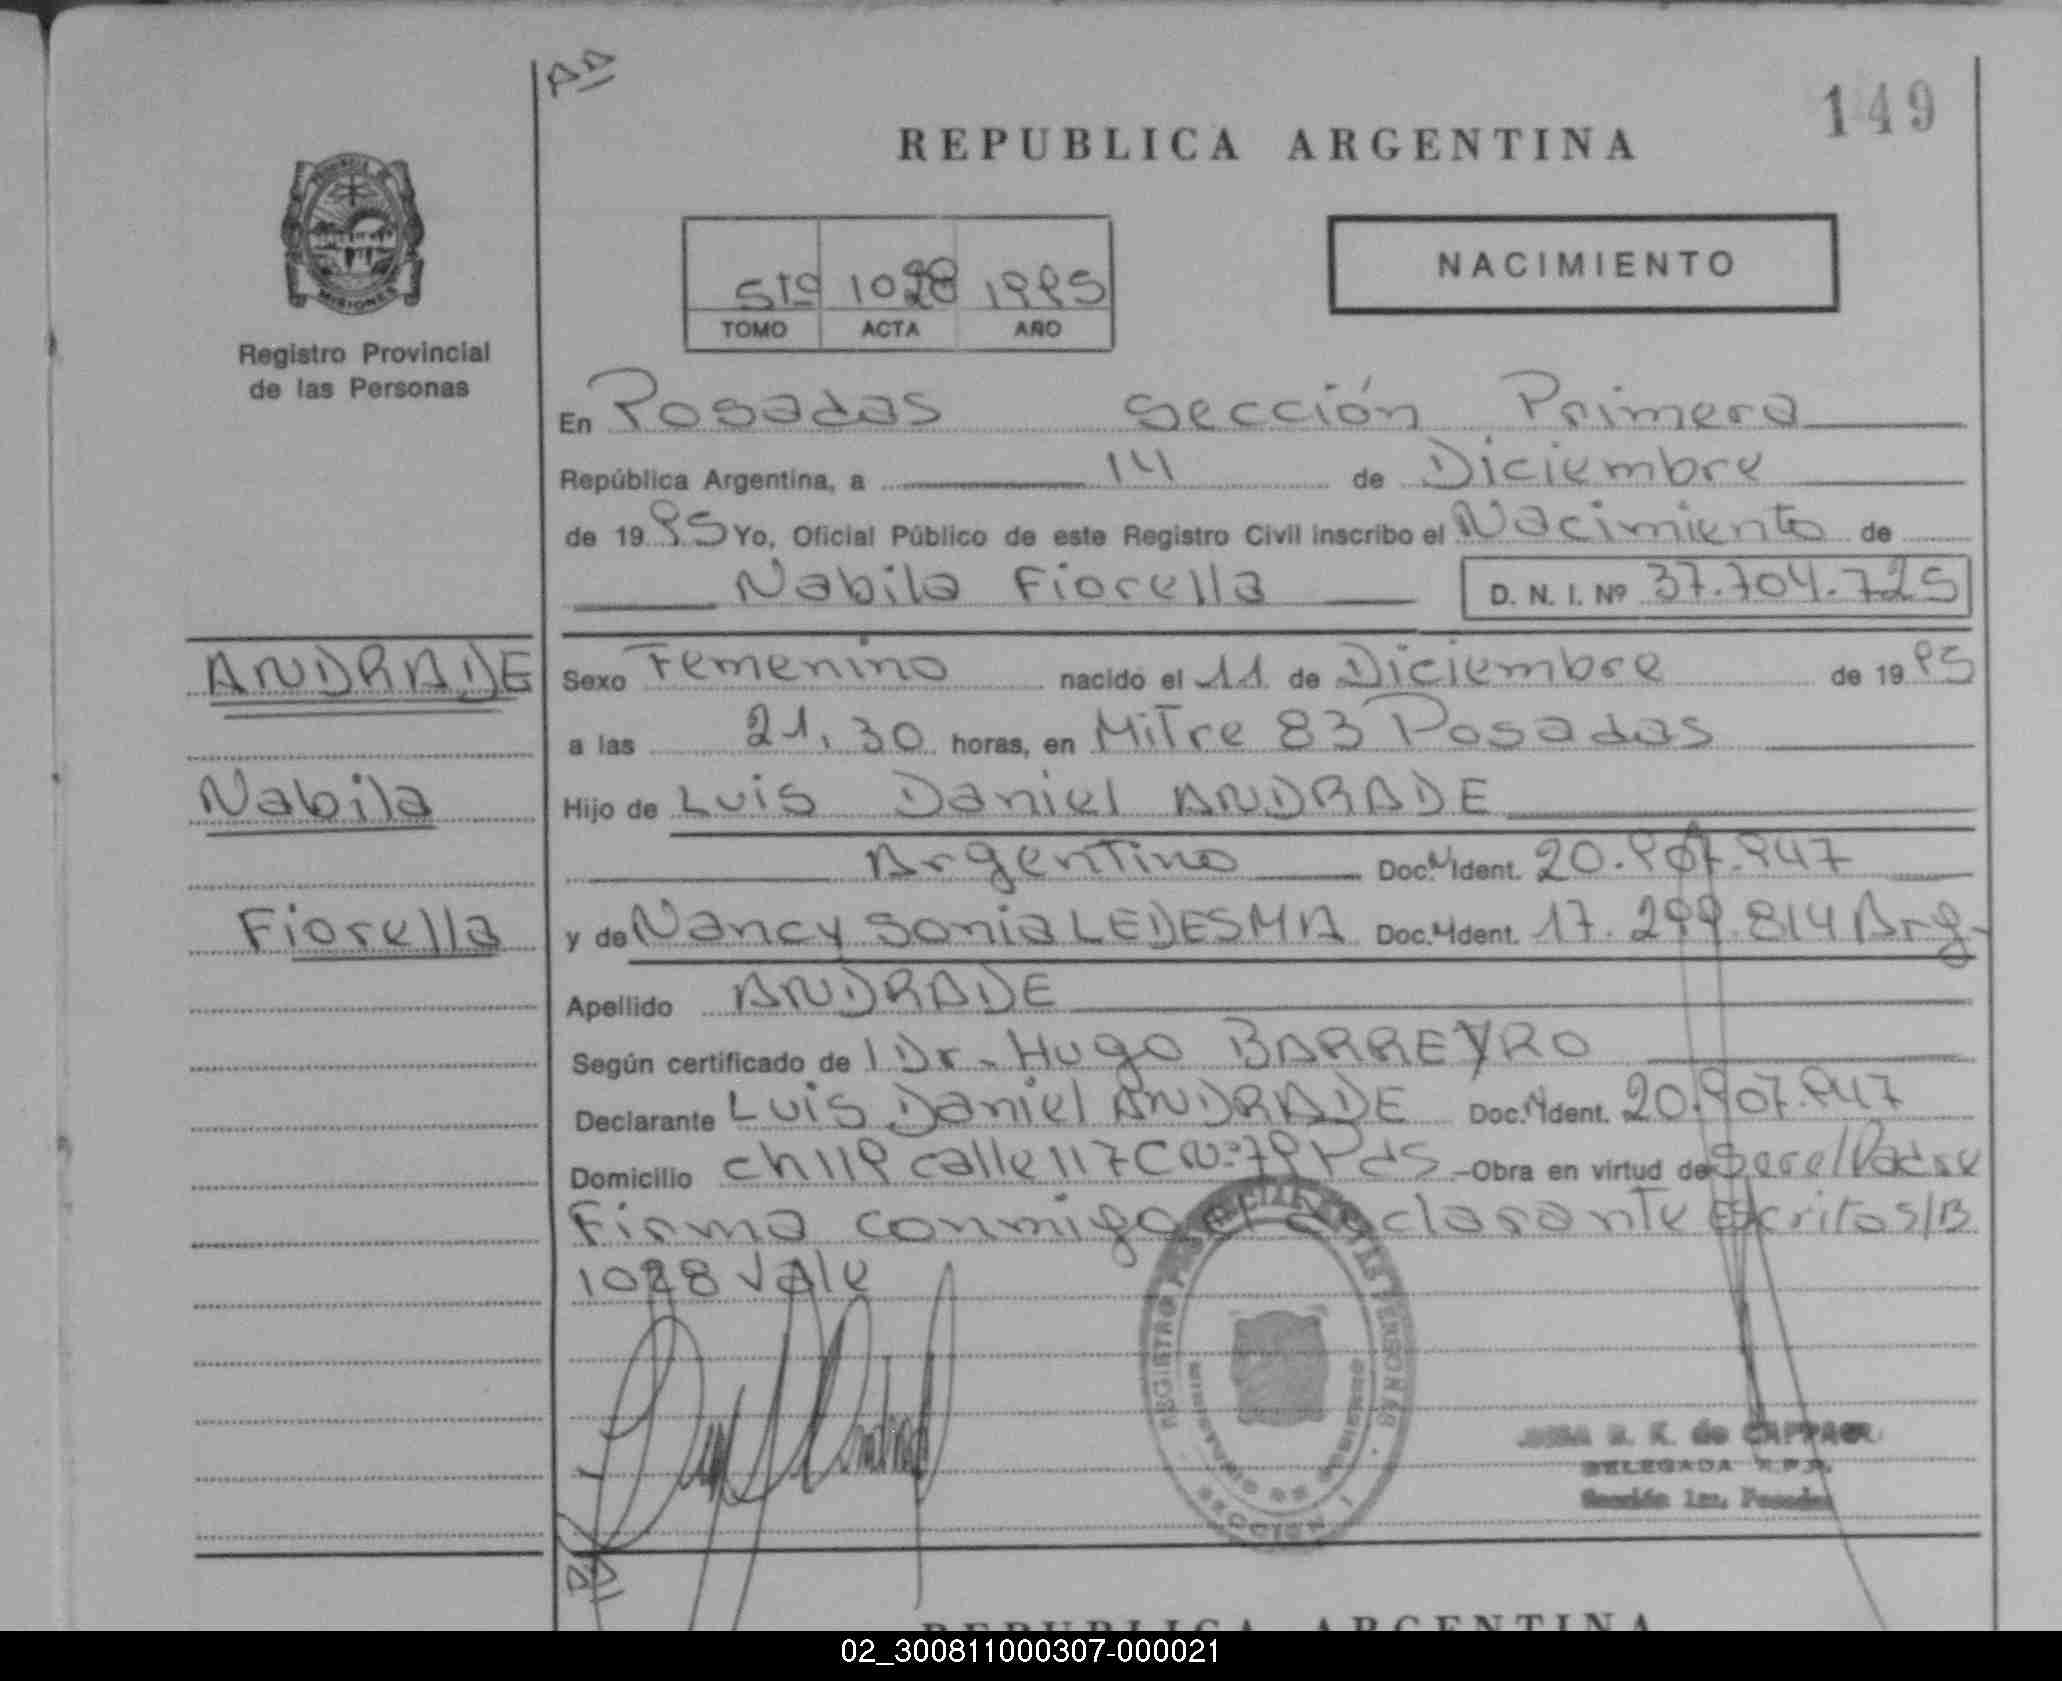 AD
149
REPUBLICA ARGENTINA
PROVINCIA DE
MISIONES
Registro Provincial
de las Personas
5to 1028 1995
TOMO ACTA AÑO
NACIMIENTO
En Posadas Sección Primera
República Argentina, a 14 de Diciembre
de 1995 Yo, Oficial Público de este Registro Civil inscribo el Nacimiento de
Nabila Fiorella D. N. I. Nº 37.704.725
ANDRADE
Nabila
Fiorella
Sexo Femenino nacido el 11 de Diciembre de 1995
a las 21,30 horas, en Mitre 83 Posadas
Hijo de Luis Daniel ANDRADE
Argentino Doc. Ident. 20.907.947
y de Nancy Sonia LEDESMA Doc. Ident. 17.299.814 Arg.
Apellido ANDRADE
Según certificado de Dr. Hugo BARREYRO
Declarante Luis Daniel ANDRADE Doc. Ident. 20.907.947
Domicilio ch119 calle 117C Nº 79 Pds -Obra en virtud de Ser el Padre
Firma conmigo el declarante Escritos/B
1028 Vale
REGISTRO PROVINCIAL DE LAS PERSONAS
SECCION 1
DELEGADA R.P.P.
Sección 1ra. Posadas
REPUBLICA ARGENTINA
02_300811000307-000021